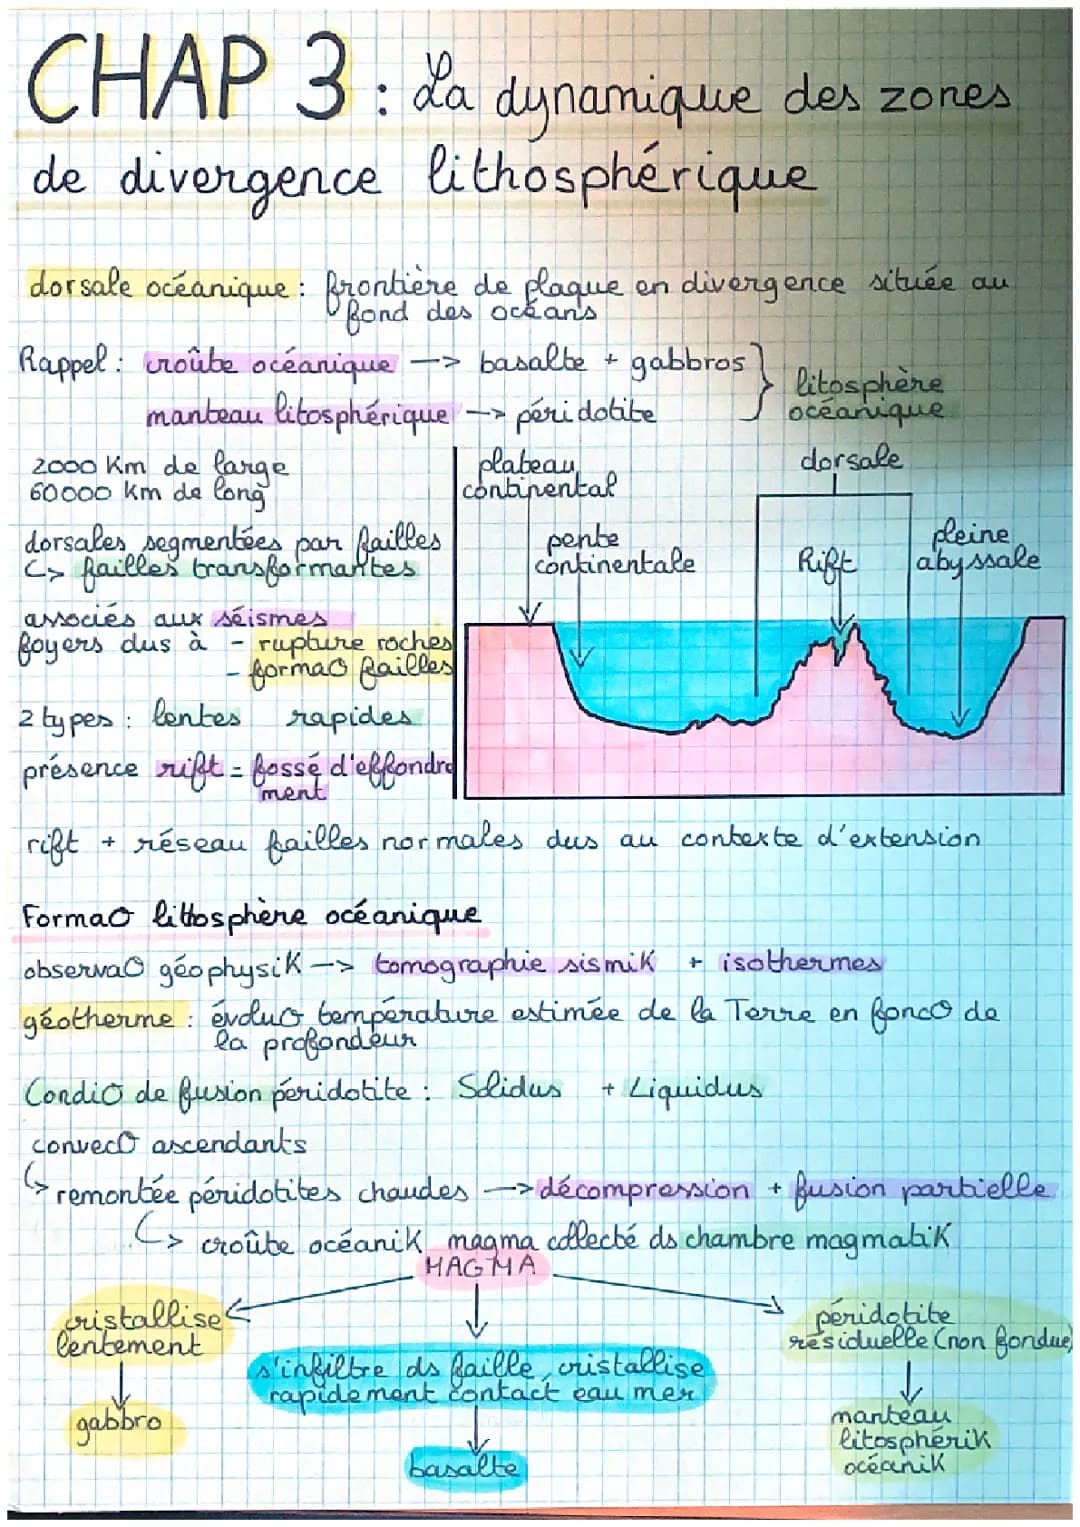 CHAP 3 : La dynamique des zones
de divergence lithosphérique
dorsale océanique : frontière de plaque en divergence située au
fond des océans
Rappel : croûte océanique --> basalte + gabbros
manteau litosphérique --> péridotite
litosphère
océanique
2000 Km de large
60000 km de long
dorsales segmentées par failles
↳ failles transformantes
associés aux séismes
foyers dus à - rupture roches
- formaO failles
2 types : lentes rapides
présence rift = fossé d'effondre
ment
plateau
continental
pente
continentale
dorsale
Rift
pleine
abyssale
rift + réseau failles normales dus au contexte d'extension
FormaO littosphère océanique
observaO géophysiK --> tomographie sismiK + isothermes
géotherme : évoluO température estimée de la Terre en foncO de
la profondeur
CondiO de fusion péridotite : Solidus + Liquidus
convecO ascendants
↳ remontée péridotites chaudes --> décompression + fusion partielle
↳ croûte océaniK magma collecté ds chambre magmatiK
MAGMA
cristallise
lentement
gabbro
s'infiltre ds faille, cristallise
rapidement contact eau mer
basalte
péridotite
résiduelle (non fondue)
manteau
litosphériK
océaniK